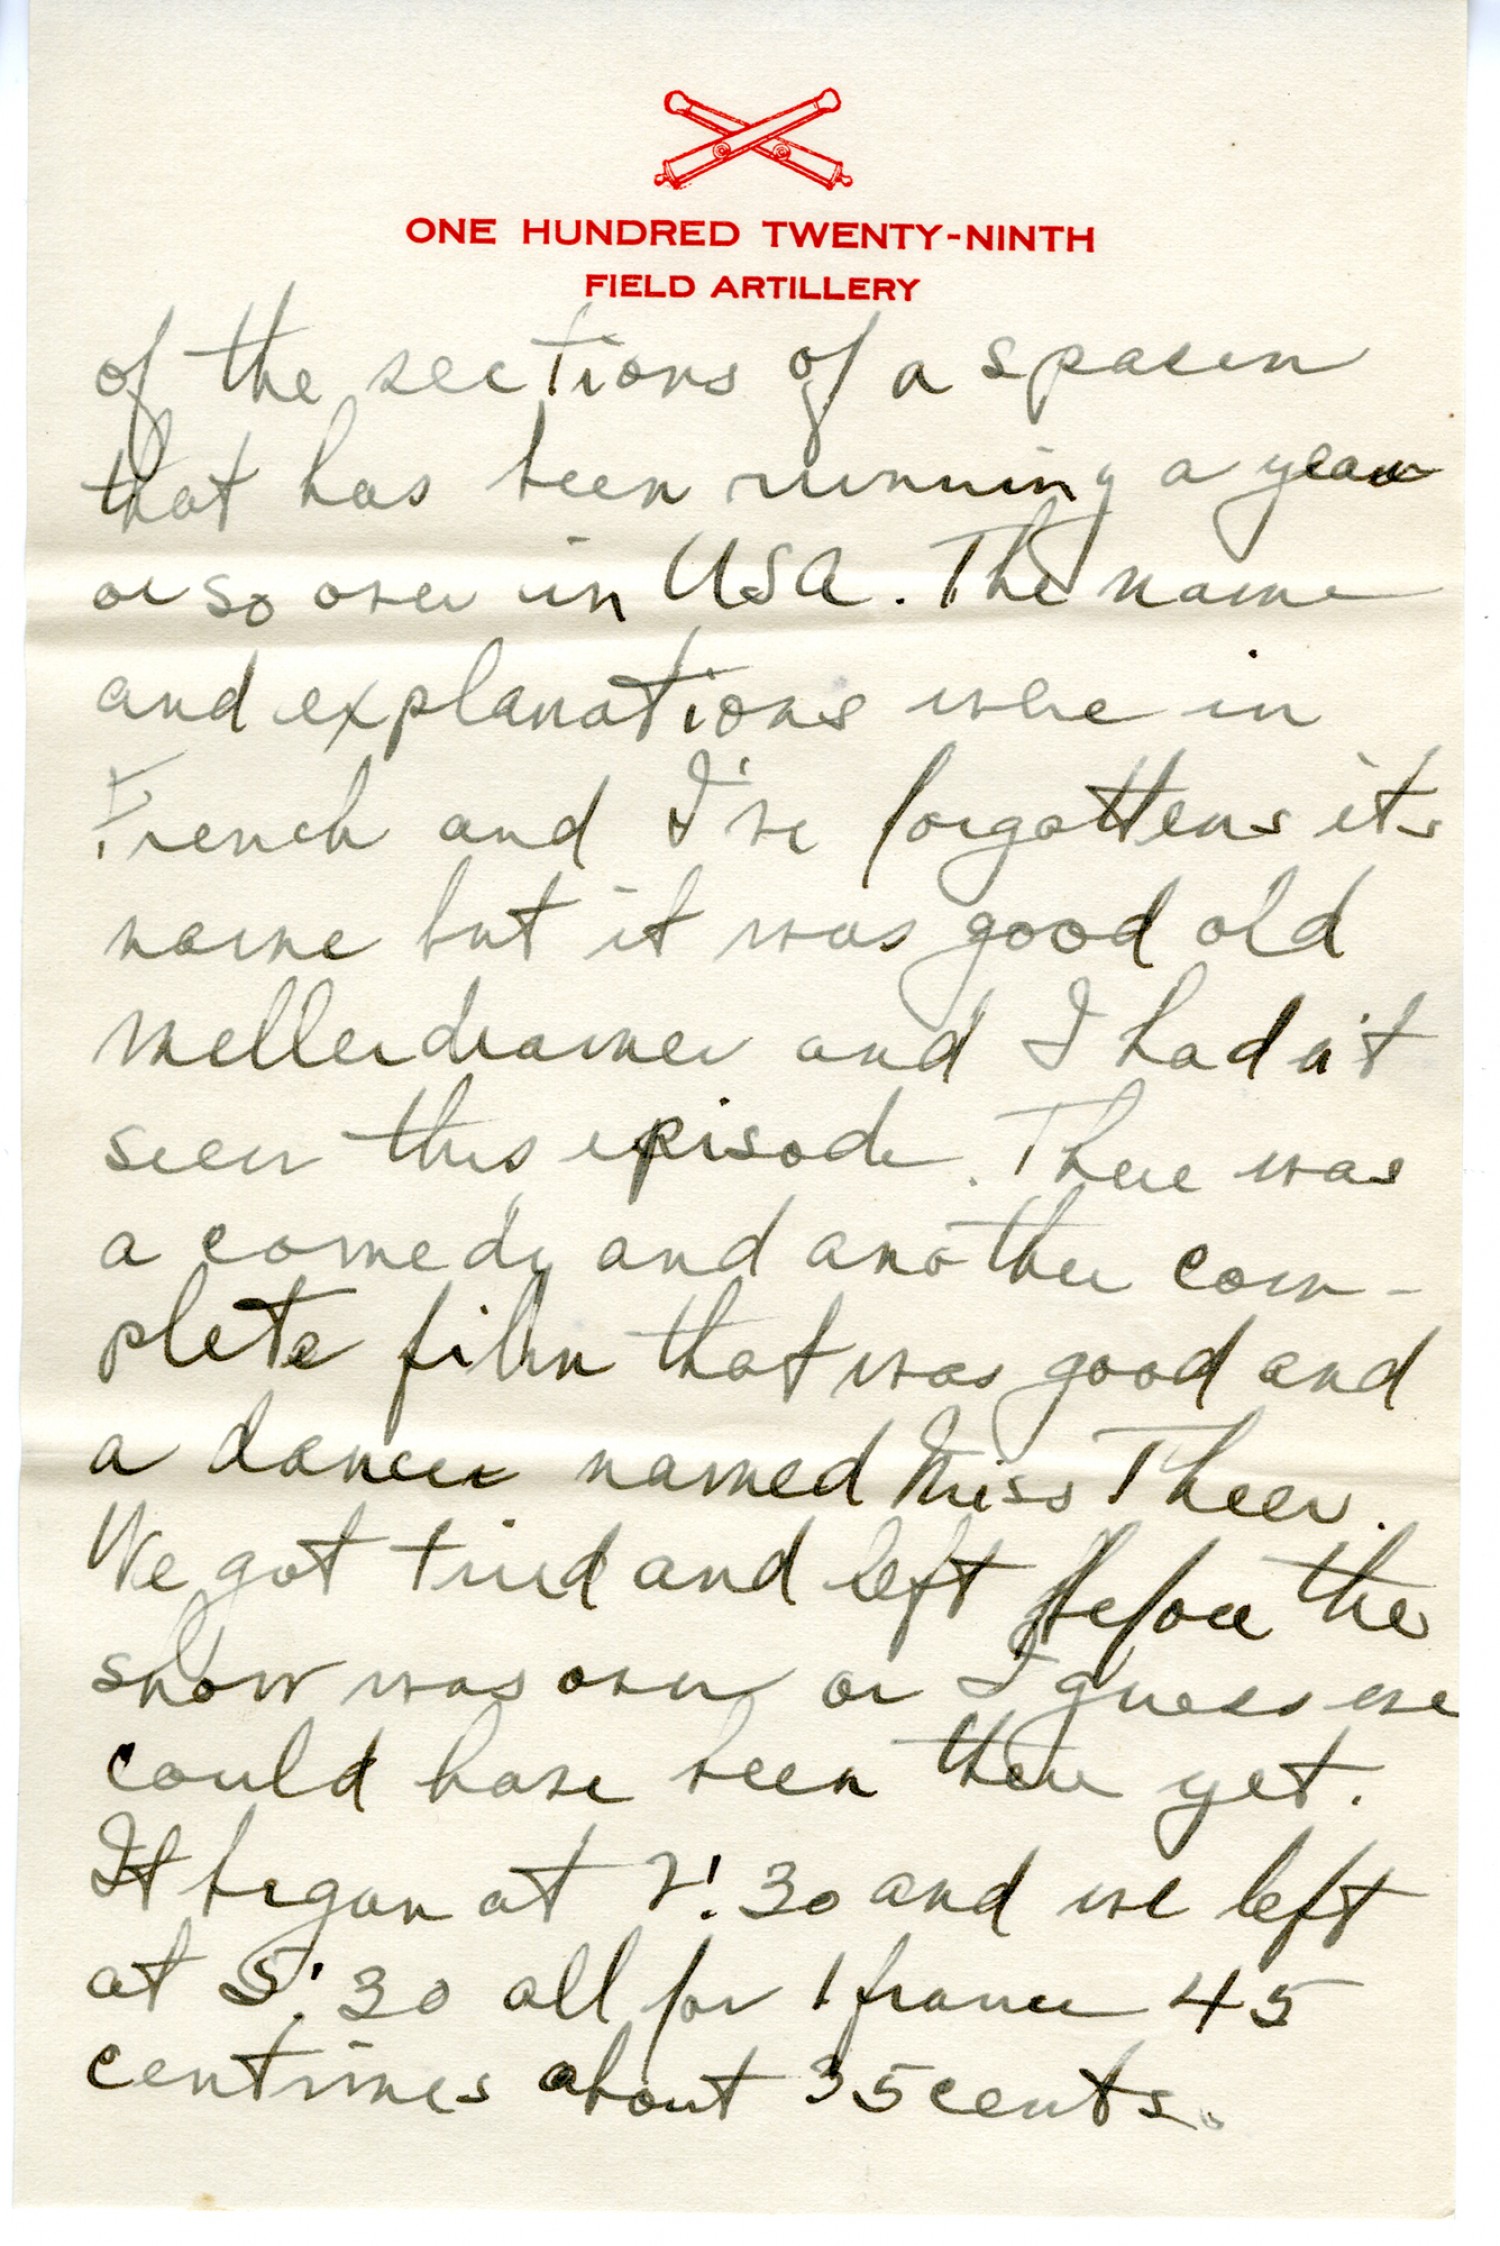 ONE HUNDRED TWENTY-NINTH
FIELD ARTILLERY
of the sections of a spasm
that has been running a year
or so over in USA. The name
and explanations were in
French and I've forgotten its
name but it was good old
mellerdramer and I hadn't
seen this episode. There was
a comedy and another com-
plete film that was good and
a dancer named Miss Theer.
We got tired and left before the
show was over or I guess we
could have been there yet.
It began at 2:30 and we left
at 5:30 all for 1 franc 45
centimes about 35 cents.